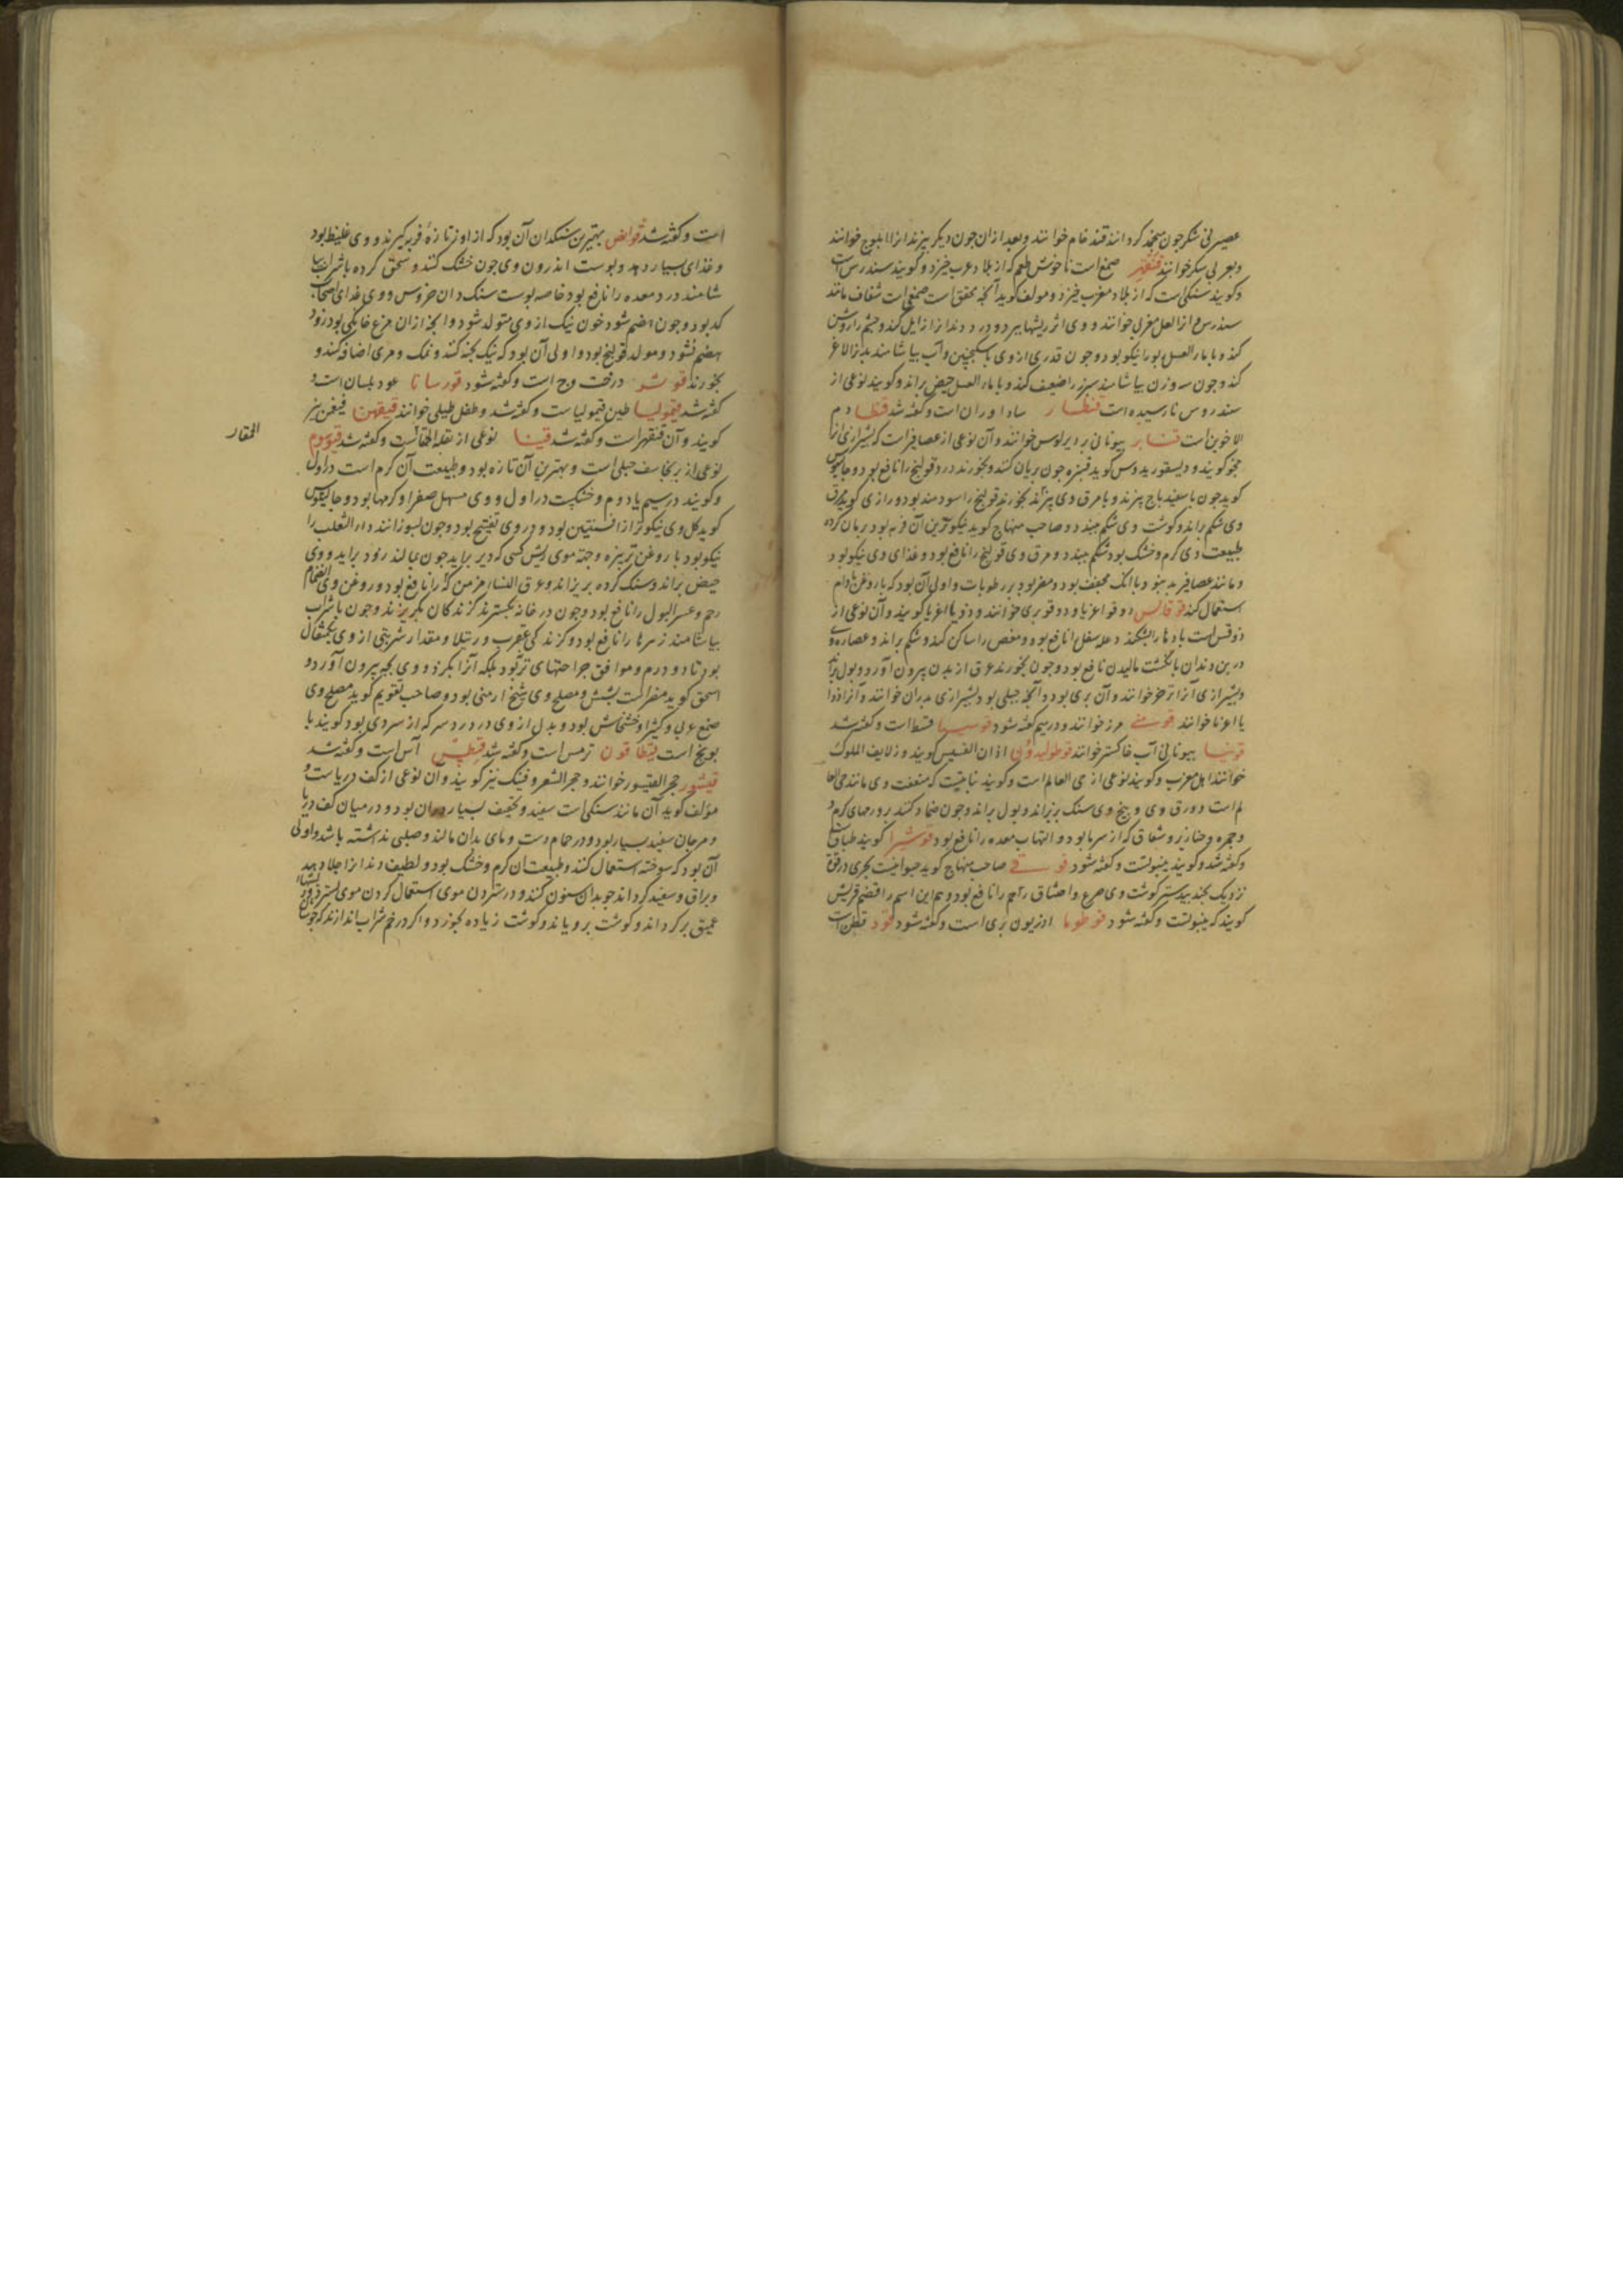 عصیر نی شکر چون منجمد کردانند قند خام خوانند و بعد از ان چون دیکر بپزند انرا ابلوج خوانند
و بعربی سکر خوانند صمغ است ناخوش طعم که از بلاد عرب خیزد و کویند سندرس است
و کویند سنکی است که از بلاد مغرب خیزد و مولف کوید آنچه محقق است صمغی است شفاف مانند
سندرس و انرا لعل مغربی خوانند و وی اثر ریشها ببرد و درد دندانرا زایل کند و چشم را روشن
کند و با ماء العسل بورا نیکو بود و چون قدری از وی با سکنجبین و آب بیاشامند بدن لاغر
کند و چون سه روز بیاشامند سپرز را ضعیف کند و با ماء العسل حیض براند و کویند نوعی از
سندروس نارسیده است قنطار ساداوران است و کفته شد قنطا دم
الاخوین است قنابر بیونانی خوانند و آن نوعی از عصافیر است که بشیرازی انرا
کویند و دیسقوریدوس کوید قنبره چون بریان کنند و بخورند درد قولنج را نافع بود و جالینوس
کوید چون با سفیدباج پزند و با مرق وی بخورند قولنج را سودمند بود و رازی کوید مرق
وی شکم براند و کوشت وی شکم ببندد و صاحب منهاج کوید نیکوترین آن فربه بود بریان کرده
طبیعت وی کرم و خشک بود شکم ببندد و مرق وی قولنج را نافع بود و غذای وی نیکو بود
و مانند عصافیر بد نبود با آنک مجفف بود و مضر بود برطوبات و اولی آن بود که با روغن بادام
استعمال کند قوقالس دوقو اغریا و دوقو بری خوانند و کویند و آن نوعی از
دوقس است بادها را بشکند و علة سفل را نافع بود و مغص را ساکن کند و شکم براند و عصاره وی
در بن دندان بانکشت مالیدن نافع بود و چون بخورند عرق از بدن بیرون آورد و بول براند
و بشیرازی آنرا خوانند و آن بری بود و آنچه جبلی بود بشیرازی بدران خوانند و آنرا
یا اغریا خوانند قومنی مرز خوانند و در میم کفته شود قوسیا قسط است و کفته شد
قونیا بیونانی آب خاکستر خوانند قوطولیدون اذان القسیس کویند و زلایف الملوک
خوانند اهل مغرب و کویند نوعی از حی العالم است و کویند نباتیست که منفعت وی مانند حی العا
لم است و ورق وی و بیخ وی سنک بریزاند و بول براند و چون ضماد کنند بر ورمهای کرم و
و جمره و خنازیر و شقاق که از سرما بود و التهاب معده را نافع بود قوشیرا کویند طباق است
و کفته شد و کویند ینبوتست و کفته شود قوقی صاحب منهاج کوید حیوانیست بحری در قوة
نزدیک بجندبیدستر کوشت وی صرع و اختناق رحم را نافع بود و هم این اسم را قضم قریش
کویند که ینبوتست و کفته شود قوطوما ادریون بری است و کفته شود قود قطن است
است و کفته شد قوانص بهترین سنکدان آن بود که از اوز تازهٔ فربه کیرند و وی غلیظ بود
و غذای بسیار دهد و پوست اندرون وی چون خشک کنند و سحق کرده با شراب بیا
شامند درد معده را نافع بود خاصه پوست سنک دان خروس و وی غذای اصحاب
کد بود و چون هضم شود خون نیک از وی متولد شود و آنچه از ان مرغ خانکی بود زود
هضم نشود و مولد قولنج بود و اولی آن بود که نیک پخته کنند و نمک و مری اضافه کنند و
بخورند قوشو درخت وج است و کفته شود قورسانا عود بلسان است و
کفته شد قیمولیا طین قیمولیاست و کفته شد و طفل طلیطلی خوانند قیقهن قیقهن نیز
کویند و آن قیقهر است و کفته شد قیثا نوعی از بقلة الحمقاست و کفته شد قیسوم
المقار
نوعی از برنجاسف جبلی است و بهترین آن تازه بود و طبیعت آن کرم است در اول
و کویند در سیم یا دوم و خشکست در اول و وی مسهل صفرا و کرمها بود و جالینوس
کوید کل وی نیکوتر از افسنتین بود و در وی تفتیح بود و چون بسوزانند داء الثعلب را
نیکو بود با روغن ترب و جهة موی ریش کسی که دیر براید چون بمالند زود براید و وی
حیض براند و سنک کرده بریزاند و عرق النساء مزمن کهنه را نافع بود و روغن وی انضمام
رحم و عسر البول را نافع بود و چون در خانه بکسترند کزندکان بکریزند و چون با شراب
بیاشامند زهرها را نافع بود و کزندکی عقرب و رتیلا و مقدار شربتی از وی یکمثقال
بود تا دو درم و موافق جراحتهای تر بود بلکه آنرا بکزد و وی بچه بیرون آورد و
اسحق کوید مضر است بشش و مصلح وی شیح ارمنی بود و صاحب تقویم کوید مصلح وی
صمغ عربی و کثیرا و خشخاش بود و بدل از وی در درد سر که از سردی بود کویند با
بونج است قیطاقون ترمس است و کفته شد قیطس آس است و کفته شد
قیشور حجر القیشور خوانند و حجر الشعر و فنک نیز کویند و آن نوعی از کف دریاست و
مؤلف کوید آن مانند سنکی است سفید و تخفیف بسیار در ان بود و در میان کف دریا
و مرجان سفید بسیار بود و در حمام دست و پای بدان مالند و صلبی نداشته باشد و اولی
آن بود که سوخته استعمال کنند و طبیعت ان کرم و خشک بود و لطیف دندانرا جلا دهد
و براق و سفید کرداند چو بدان سنون کنند و در ستردن موی استعمال کردن موی بسترد و ریشهاء
عمیق پر کرداند و کوشت برویاند و کوشت زیاده بخورد و اکر در خم شراب اندازند که جوشان